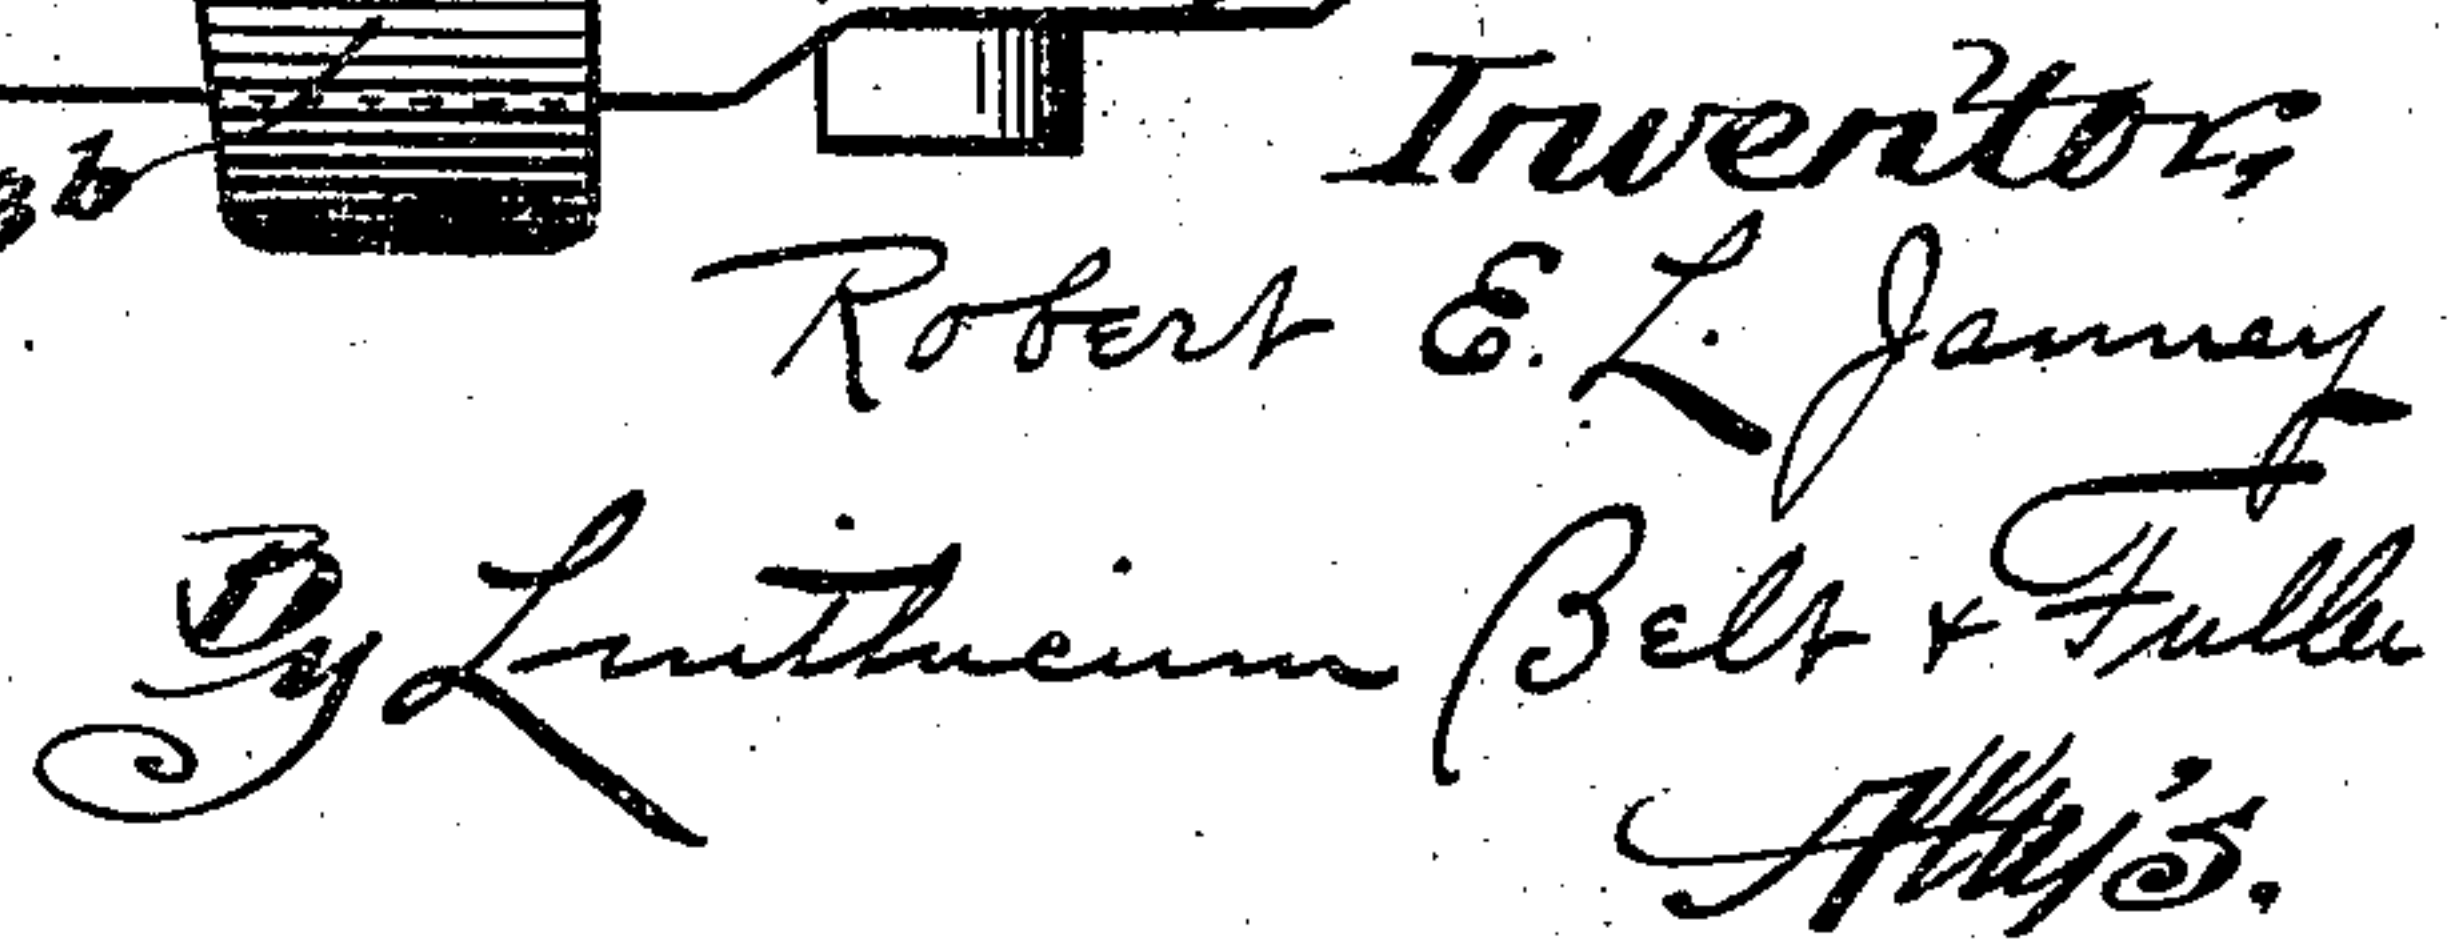 b
Inventor,
Robert E. L. Janney
By Linthicum Belt & Fuller
Att'ys.